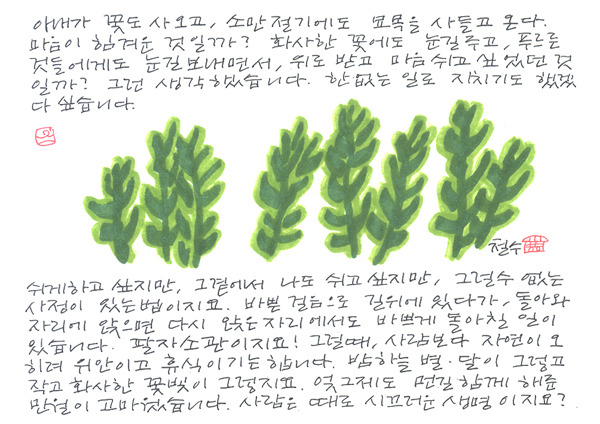 아내가 꽃도 사오고, 소만절기에도 묘목을 사들고 온다.
마음이 힘겨운 것일까? 화사한 꽃에도 눈길주고, 푸르른
것들에게도 눈길보내면서, 위로 받고 마음쉬고 싶었던 것
일까? 그런 생각했습니다. 한없는 일로 지치기도 했겠
다 싶습니다.
철수
쉬게하고 싶지만, 그곁에서 나도 쉬고 싶지만, 그럴수 없는
사정이 있는법이지요. 바쁜 걸음으로 길위에 있다가, 돌아와
자리에 앉으면 다시 앉은자리에서도 바쁘게 돌아칠 일이
있습니다. 팔자소관이지요! 그럴때, 사람보다 자연이 오
히려 위안이고 휴식이기는합니다. 밤하늘 별·달이 그렇고
작고 화사한 꽃빛이 그렇지요. 엊그제도 먼길함께 해준
만월이 고마웠습니다. 사람은 때로 시끄러운 생명이지요?